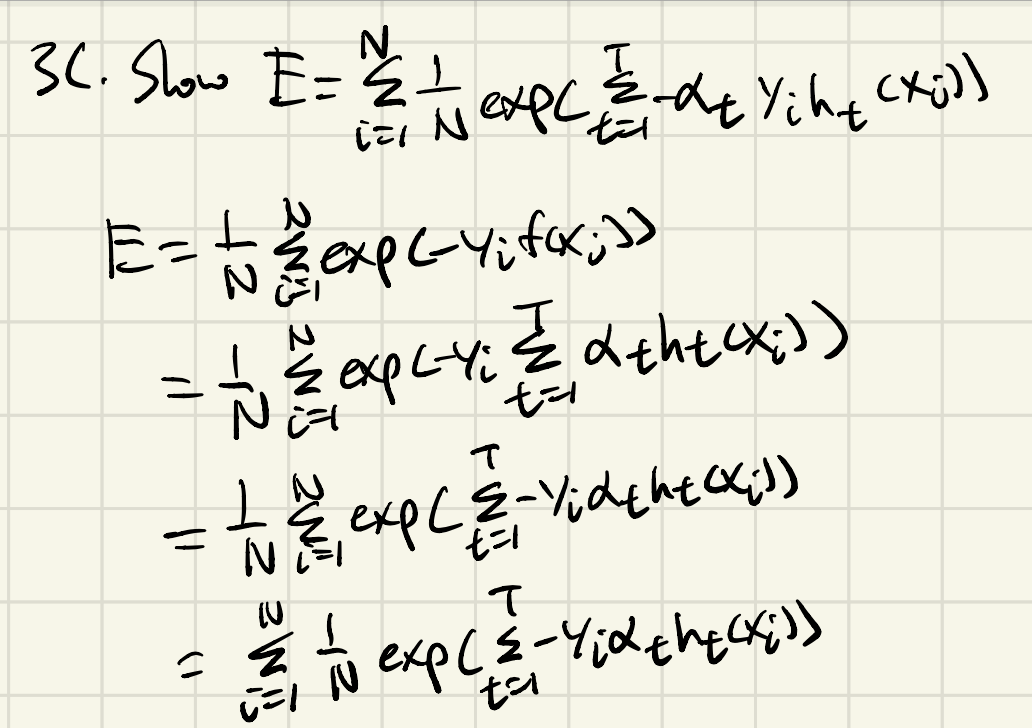 3C. Show E = Σ_{i=1}^{N} 1/N exp( Σ_{t=1}^{T} -α_t y_i h_t (x_i))
E = 1/N Σ_{i=1}^{N} exp(-y_i f(x_i))
= 1/N Σ_{i=1}^{N} exp(-y_i Σ_{t=1}^{T} α_t h_t(x_i))
= 1/N Σ_{i=1}^{N} exp( Σ_{t=1}^{T} -y_i α_t h_t(x_i))
= Σ_{i=1}^{N} 1/N exp( Σ_{t=1}^{T} -y_i α_t h_t(x_i))